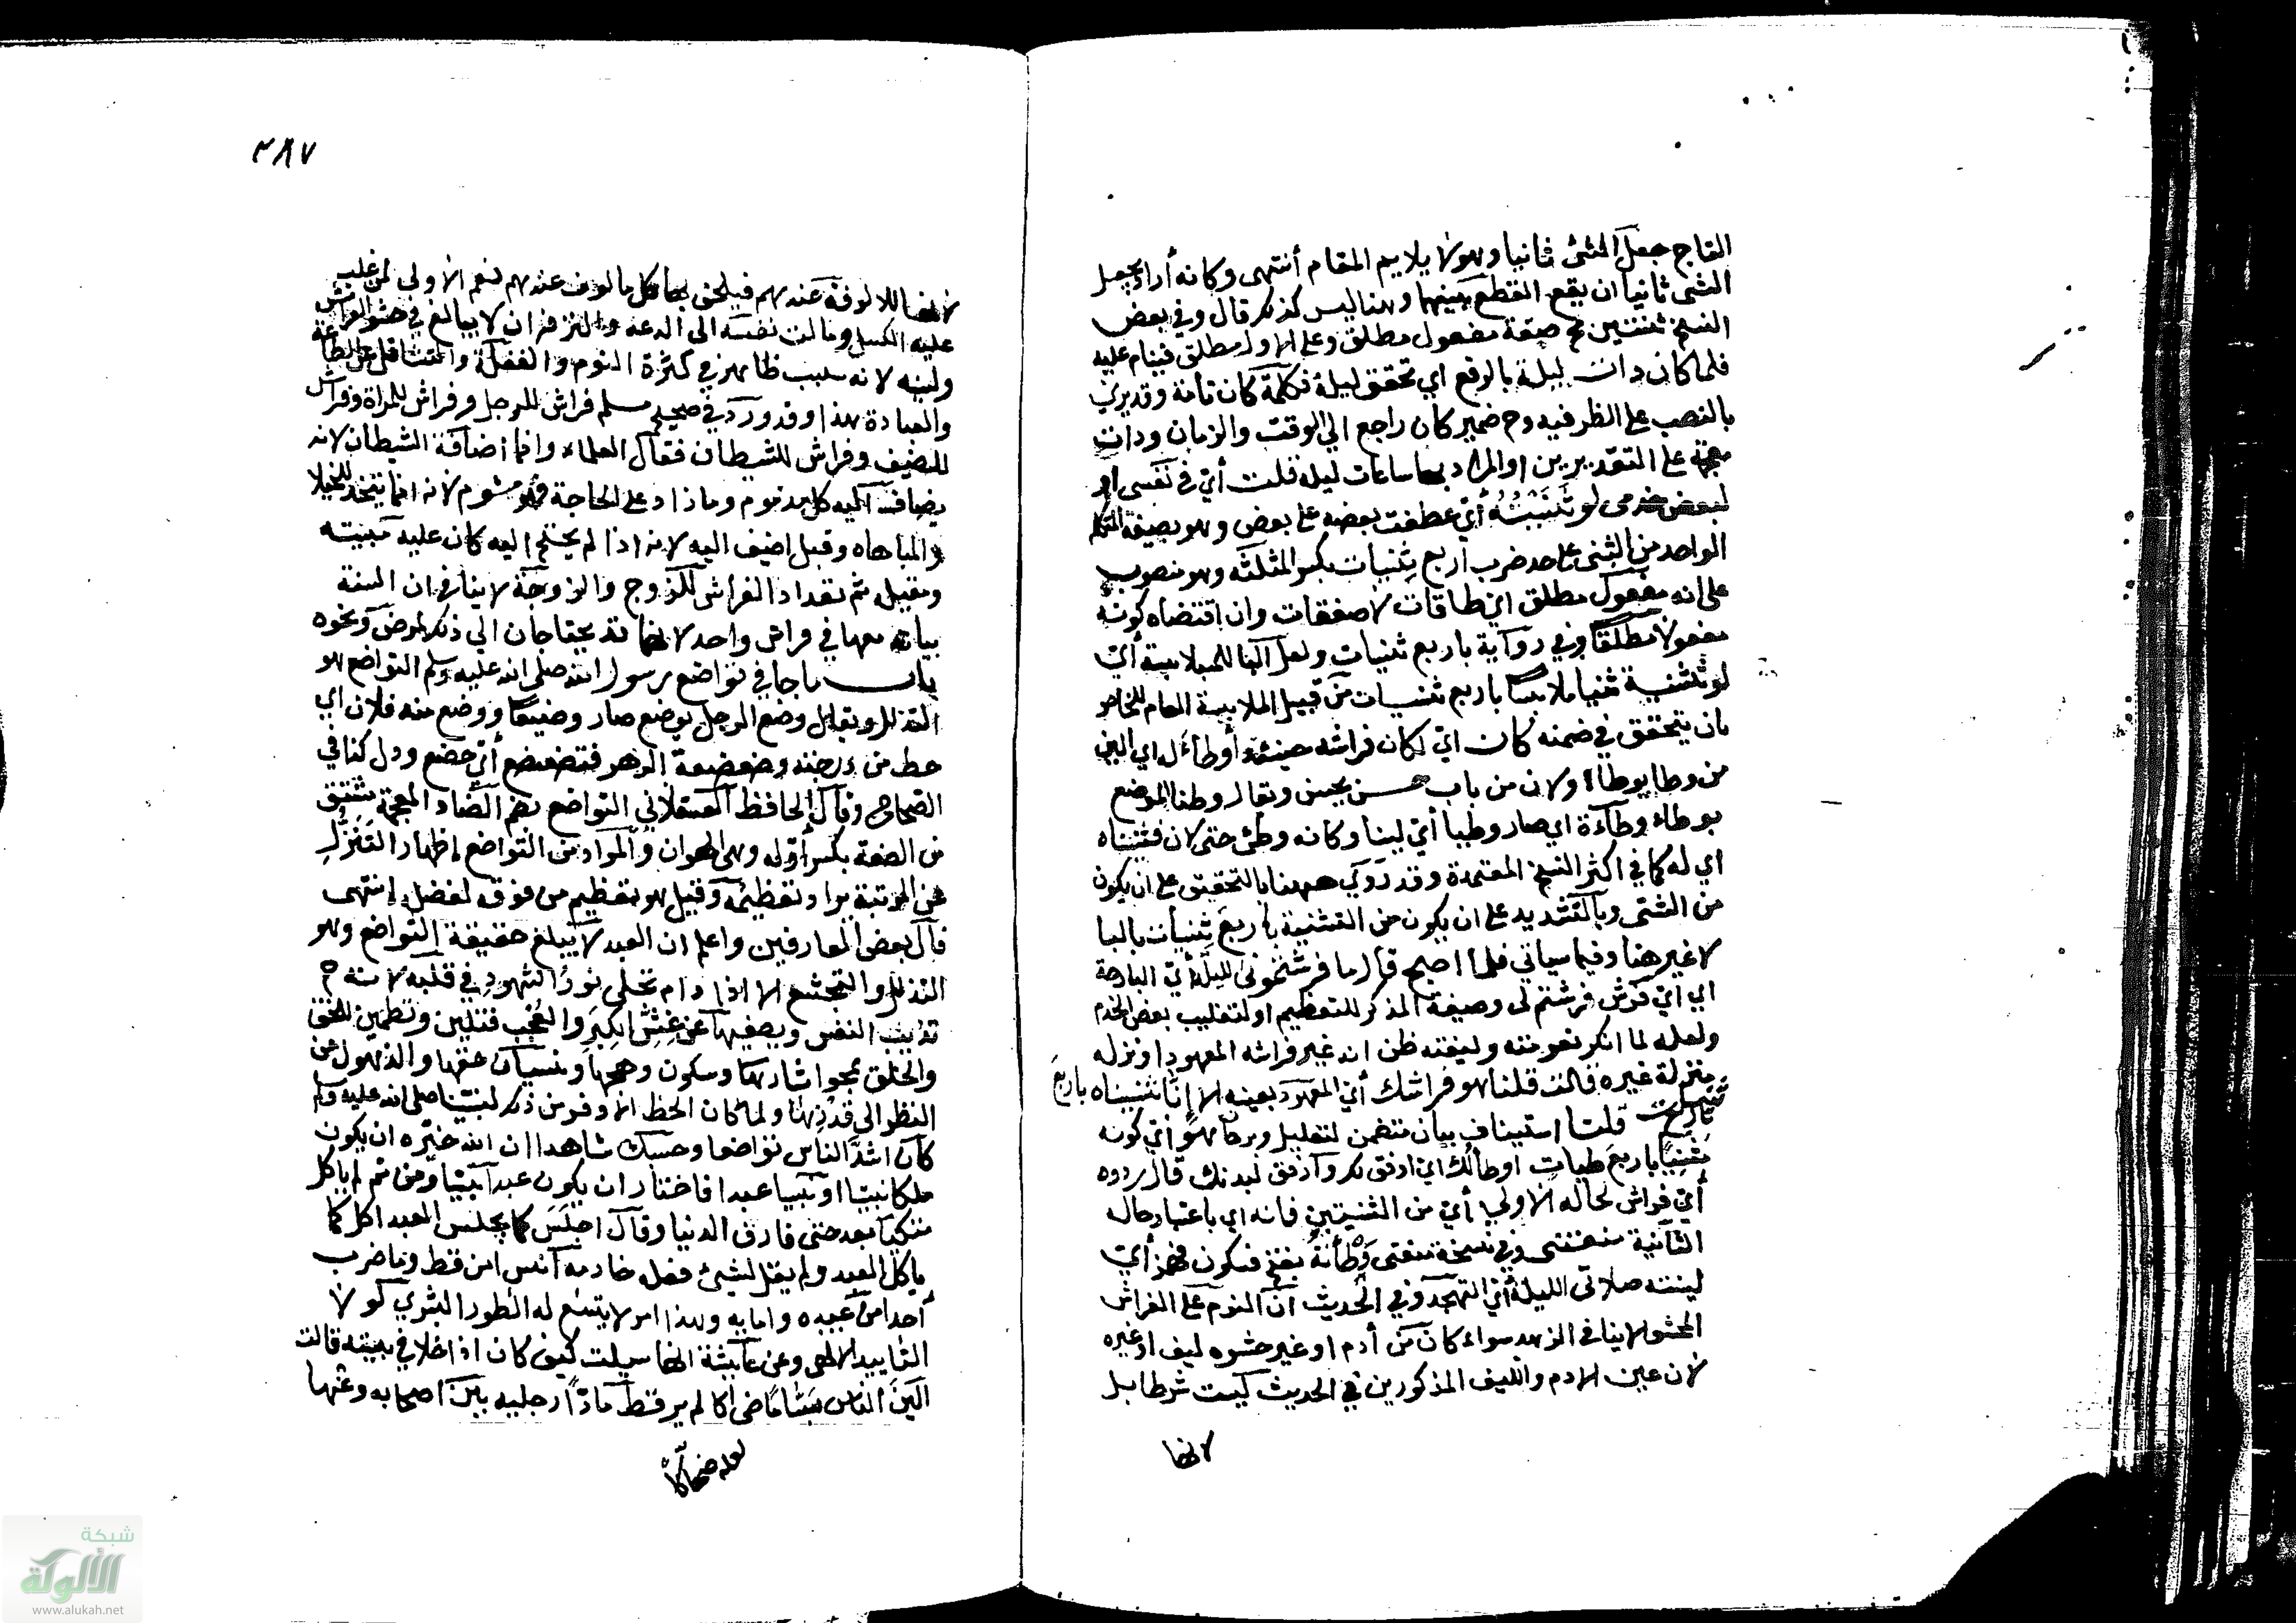 التاج جعل الشئ ثانيا وهو لا يلايم المقام أنتهى وكانه أراد بجعل
الشئ ثانيا ان يقع القطع بينهما وهنا ليس كذلك قال وفي بعض
النسخ ثنتين مح صفة مفعول مطلق وعلى الاول مطلق فينام عليه
فلما كان ذات ليلة بالرفع اي تحقق ليلة فكلمة كان تامة وقد يروى
بالنصب على الظرفيه وح ضمير كان راجع الى الوقت والزمان وذات
مقحمة على التقديرين او المراد بها ساعات ليله قلت أي في نفسى او
لبعض خدمى لو ثنيته أي عطفت بعضه على بعض وهو بصيغة المتكلم
الواحد من الثنى على حد ضرب أربع ثنيات بكسر المثلثه وهو منصوب
على انه مفعول مطلق اي طاقات لا صفقات وان اقتضاه كونه
مفعولا مطلقا وفي رواية باربع ثنيات ولعل الباء للملابسة أي
لو ثنيته ثنيا ملابسا باربع ثنيات من قبيل الملابسة العام للخاص
بان يتحقق في ضمنه كان اي لكان فراشه حينئذ أوطأ له اي الين
من وطا يوطا ولان من باب حسن يحسن ويقال وطئ الموضع
يوطاء وطآءة اي صار وطيا أي لينا وكانه وطئ حتى لان فثنيناه
اي له كما في اكثر النسخ المعتمدة وقد روي ههنا بالتخفيف على ان يكون
من الثنى وبالتشديد على ان يكون من التثنية باربع ثنيات بالبا
لا غير هنا وفيما سياتي فلما اصبح قال ما فرشتموني لليلة أي البارحة
اي اي فرش فرشتم لى وصيغة المذكر للتعظيم او لتغليب بعض الخدم
ولعله لما انكر نعومته ولينته ظن انه غير فراشه المعهود او نزله
منزلة غيره قالت قلنا هو فراشك أي المعهود بعينه الا انا ثنيناه باربع
ثنيات قلت استيناف بيان متضمن لتعليل وبرهان هو أي كونه
مثنيا باربع طيات اوطالك اي اوفق لك وأرفق لبدنك قال ردوه
أي فراش لحاله الاولى أي من الثنيتين فانه اي باعتبار حاله
الثانية منعتنى وفي نسخة منعتى وطأته بفتح فسكون فهمز أي
لينته صلاتى الليلة أي التهجد وفي الحديث ان النوم على الفراش
المحشو لا ينافى الزهد سواء كان من أدم او غير حشوه ليف او غيره
لان عين الادم والليف المذكورين في الحديث ليست شرطا بل
لانها
٣٨٧
لانها المالوفة عندهم فيلحق بها كل مالوف عندهم نعم الاولى لمن غلب
عليه الكسل ومالت نفسه الى الدعة والترفه ان لا يبالغ في حشو الفراش
ولينه لانه سبب ظاهر في كثرة النوم والغفلة والتثاقل عن الطاعة
والعبادة هذا وقد ورد في صحيح مسلم فراش للرجل وفراش للمراة وفراش
للضيف وفراش للشيطان فقال العلماء وانما أضافه الشيطان لانه
يضاف اليه كل مذموم وما زاد على الحاجة فهو مشوم لانه انما يتخذ للخيلا
والمباهاه وقيل اضيف اليه لانه اذا لم يحتج اليه كان عليه مبيته
ومقيله ثم تعداد الفراش للزوج والزوجة لا ينافي ان السنة
بياته معها في فراش واحد لانهما قد يحتاجان الي ذلك لمرض ونحوه
باب ما جا في تواضع رسول الله صلى الله عليه وسلم التواضع هو
التذلل ويقال وضع الرجل يوضع صار وضيعا ووضع منه فلان اي
حط من درجته وضعضعه الدهر فتضعضع أي خضع وذل كذا في
الصحاح وقال الحافظ العسقلاني التواضع بضم الضاد المعجمة مشتق
من الضعة بكسر أوله وهى الهوان والمراد من التواضع اظهار التنزل
عن المرتبة يراد تعظيمه وقيل هو تعظيم من فوقه لفضل انتهى
قال بعض العارفين واعلم ان العبد لا يبلغ حقيقة التواضع وهو
التذلل والتخشع الا اذا دام تجلى نور الشهود في قلبه لانه ح
تذيب النفس ويصفيها عن غش الكبر والعجب فتلين وتطمين للحق
والخلق بمحو اثارها وسكون وهجها ونسيان حقها والذهول عن
النظر الى قدرها ولما كان الحظ الاوفر من ذلك لنبينا صلى الله عليه وسلم
كان اشد الناس تواضعا وحسبك شاهدا ان الله خيره ان يكون
ملكا نبيا او نبيا عبدا فاختار ان يكون عبدا نبيا ومن ثم لم ياكل
متكيا بعد حتى فارق الدنيا وقال اجلس كما يجلس العبد اكل كما
ياكل العبد ولم يقل لشيئ فعله خادمه أنس اف قط وما ضرب
أحدا من عبيده وامايه وهذا امر لا يتسع له الطور البشري لو لا
التاييد الالهى وعن عايشة انها سيلت كيف كان اذا خلا في بيته قالت
الين الناس بساما ضحاكا لم ير قط مادا رجليه بين اصحابه وعنها
لعله ضحاكا
شبكة
الألوكة
www.alukah.net